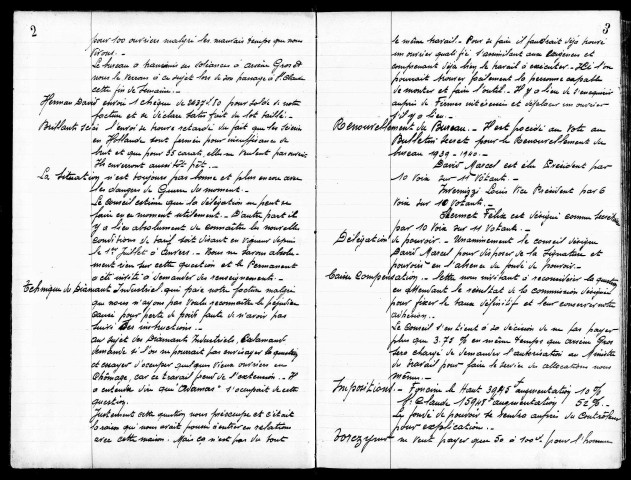 2
pour 100 ouvriers malgré les mauvais temps que nous
vivons. -
Le bureau a transmis ses doléances à Arsène Gros et
nous le verrons à ce sujet lors de son passage à St Claude
cette fin de semaine. -
Herman David envoi 1 chèque de 2637 50 pour solde de notre
facture et se déclare satisfait du lot taillé. -
Brillants scié l'envoi de houre retardé du fait que les scieries
en Hollande sont fermées pour insuffisance de
brut et que pour 35 carats elle ne veulent pas ouvrir.
Ils ouvreront aussitôt prêt. -
La Situation n'est toujours pas bonne et plus encore avec
les dangers de Guerre du moment. -
Le Conseil estime que la délégation ne peut se
faire en ce moment utilement. - D'autre part il
y a lieu absolument de connaître les nouvelles
conditions de tarif soit disant en vigueur depuis
le 1er Juillet à Anvers. - Nous ne savons absolu-
ment rien sur cette question et le Permanent
a été invité à demander des renseignements. -
Technique de Diamant Industriel, qui paie notre facture malgré
que nous n'ayons pas voulu reconnaître le préjudice
causé pour perte de poids faute de n'avoir pas
suivi des instructions. -
Au sujet des Diamant Industriels, Calamand
demande si l'on ne pourrait pas envisager la question
et essayer d'occuper quelques vieux ouvriers en
chômage, car ce travail prend de l'extension. - Il
a entendu dire que "Adamas" s'occupait de cette
question.
Justement cette question nous préoccupe et c'était
la raison qui nous avait poussé à entrer en relations
avec cette maison. Mais ça n'est pas du tout
3
le même travail. Pour se faire il faudrait déjà pouvoir
un ouvrier qualifié s'assimilant aux exigences et
comprenant déjà bien le travail à exécuter. - Et l'on
pourrait trouver facilement la personne capable
de monter et faire l'outil. - Il y a lieu de s'enquérir
auprès de Firmes intéressées et déplacer un ouvrier
s'il y a lieu. -
Renouvellement du Bureau. - Il est procédé au Vote au
Bulletin Secret pour le Renouvellement du
bureau 1939-1940. -
David Marcel est élu Président par
10 Voix sur 11 Votants. -
Invernizzi Louis Vice Président par 6
Voix sur 10 Votants. -
Hermet Félix est désigné comme Secrétaire
par 10 Voix sur 11 Votants. -
Délégation de pouvoir. - Unanimement le conseil désigne
David Marcel pour disposer de la Signature et
pouvoir en l'absence du fondé de pouvoir. -
Caisse Compensation. - Lettre nous invitant à reconsidérer la question
en attendant le résultat de la commission désignée
pour fixer le taux définitif et leur conserver notre
adhésion. -
Le Conseil s'en tient à sa décision de ne pas payer
plus que 3.75 % en même temps que Arsène Gros
sera chargé de demander l'autorisation au Ministère
du travail pour faire le service des allocations nous
même. -
Impositions. - Foncine le Haut augmentation 10 %
St Claude augmentation 52 %. -
Le fondé de pouvoir se rendra auprès du Contrôleur
pour explication. -
ne veut payer que 50 à 100 pour l'homme